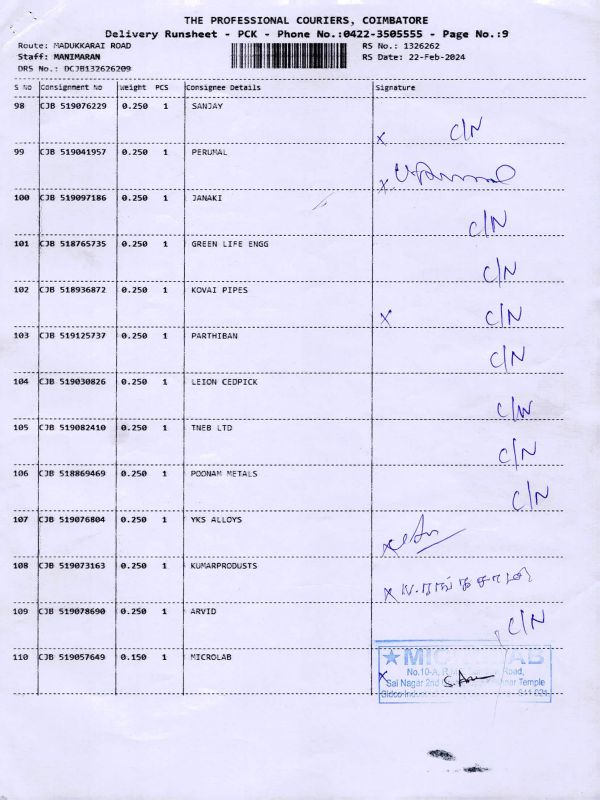 THE PROFESSIONAL COURIERS, COIMBATORE
Delivery Runsheet - PCK - Phone No.:0422-3505555 - Page No.:9
Route: MADUKKARAI ROAD RS No.: 1326262
Staff: MANIMARAN RS Date: 22-Feb-2024
DRS No.: DCJB132626209
S No Consignment No Weight PCS Consignee Details Signature
98 CJB 519076229 0.250 1 SANJAY
x C/N
99 CJB 519041957 0.250 1 PERUMAL
x
100 CJB 519097186 0.250 1 JANAKI
C/N
101 CJB 518765735 0.250 1 GREEN LIFE ENGG
C/N
102 CJB 518936872 0.250 1 KOVAI PIPES
x C/N
103 CJB 519125737 0.250 1 PARTHIBAN
C/N
104 CJB 519030826 0.250 1 LEION CEDPICK
C/N
105 CJB 519082410 0.250 1 TNEB LTD
C/N
106 CJB 518869469 0.250 1 POONAM METALS
C/N
107 CJB 519076804 0.250 1 YKS ALLOYS
x
108 CJB 519073163 0.250 1 KUMARPRODUSTS
x
109 CJB 519078690 0.250 1 ARVID
C/N
110 CJB 519057649 0.150 1 MICROLAB
No.10-A, Road,
x Sai Nagar 2nd Temple
641 021